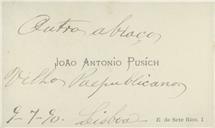 Outro abraço
João Antonio Pusich
Velho Republicano
9-7-90. Lisboa
R. de Sete Rios, 1